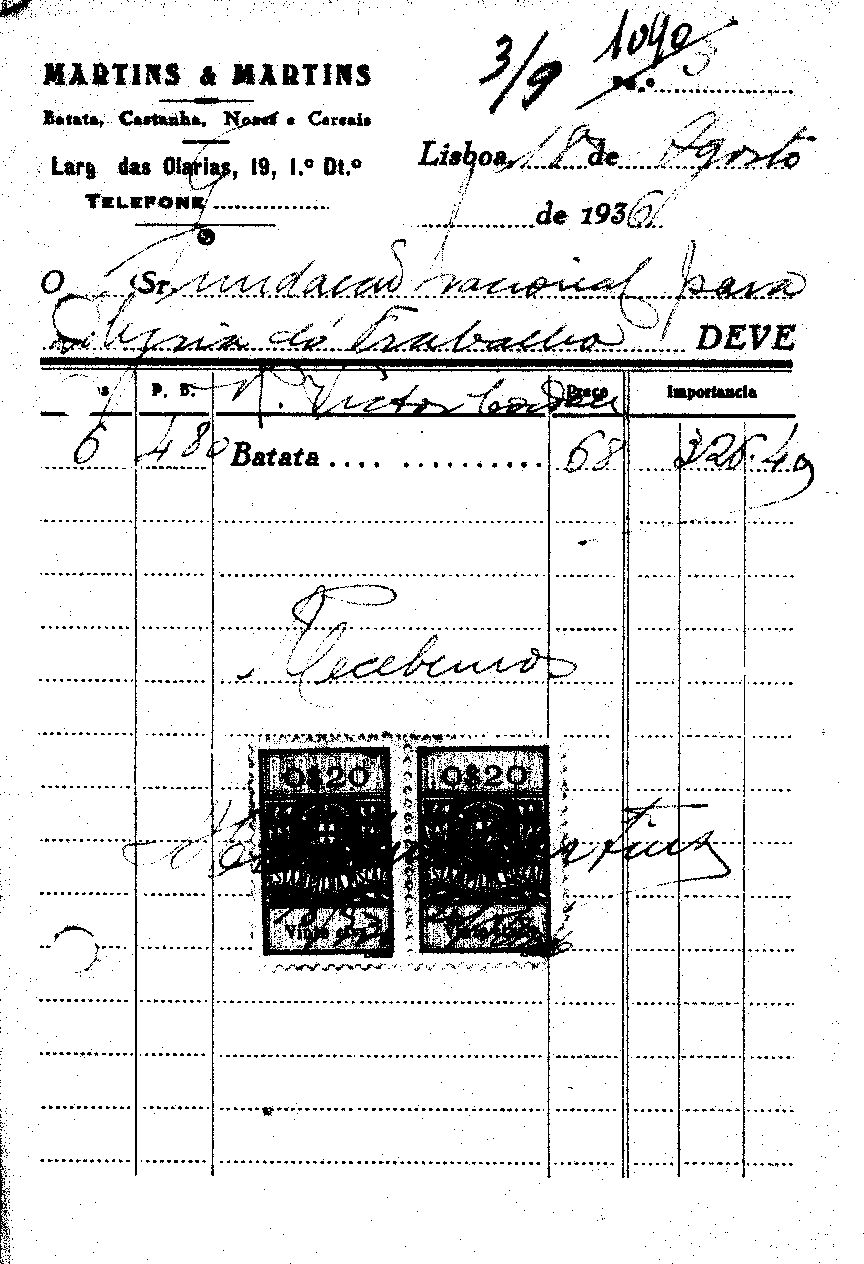 3/9 1090 3
MARTINS & MARTINS
Batata, Castanha, Nozes e Cereais
Larg das Olarias, 19, 1.º Dt.º
TELEFONE
Lisboa, 18 de Agosto
de 1936
O Sr. Fundação nacional para
Alegria do Trabalho DEVE
s P. B. R. Victor Cordon Preço Importancia
6 480 Batata .... .......... 68 326.40
Recebemos
0$20 0$20
Martins